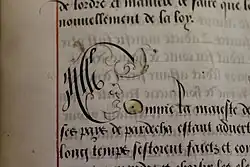 de lordre et maniere de faire que le
nouuellement de la loy.
Comme la maieste de
ses pays de pardecha estant aduer
long temps sefforcent faictz et co